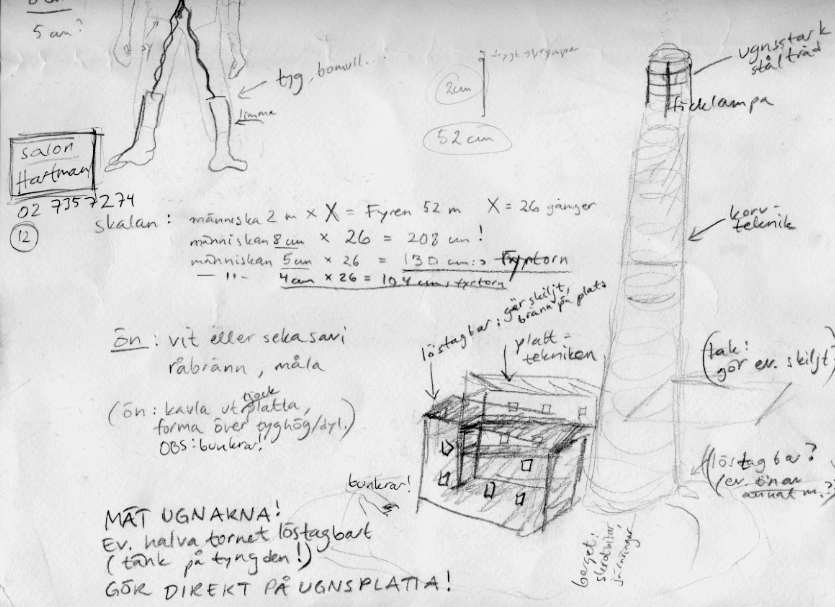 5 cm?
tyg, bomull...
limma
2cm
52 cm
ugnsstark
ståltråd
ficklampa
salon
Hartman
02 7357274
12
skalan: människa 2 m × X = Fyren 52 m X = 26 gånger
människan 8 cm × 26 = 208 cm!
människan 5 cm × 26 = 130 cm:s Fyrtorn
— " - 4 cm × 26 = 104 cm:s fyrtorn
korv-
teknik
ön: vit eller sekasavi
råbränn, måla
(ön: kavla ut tjock platta,
forma över tyghög/dyl.)
OBS: bunkrar!
löstagbar: gör skiljt,
bränn på plats
platt-
tekniken
(tak:
gör ev. skiljt)
löstagbar?
(ev. önan
annat m.?)
bunkrar!
berget:
MÄT UGNARNA!
Ev. halva tornet löstagbart
(tänk på tyngden!)
GÖR DIREKT PÅ UGNSPLATTA!